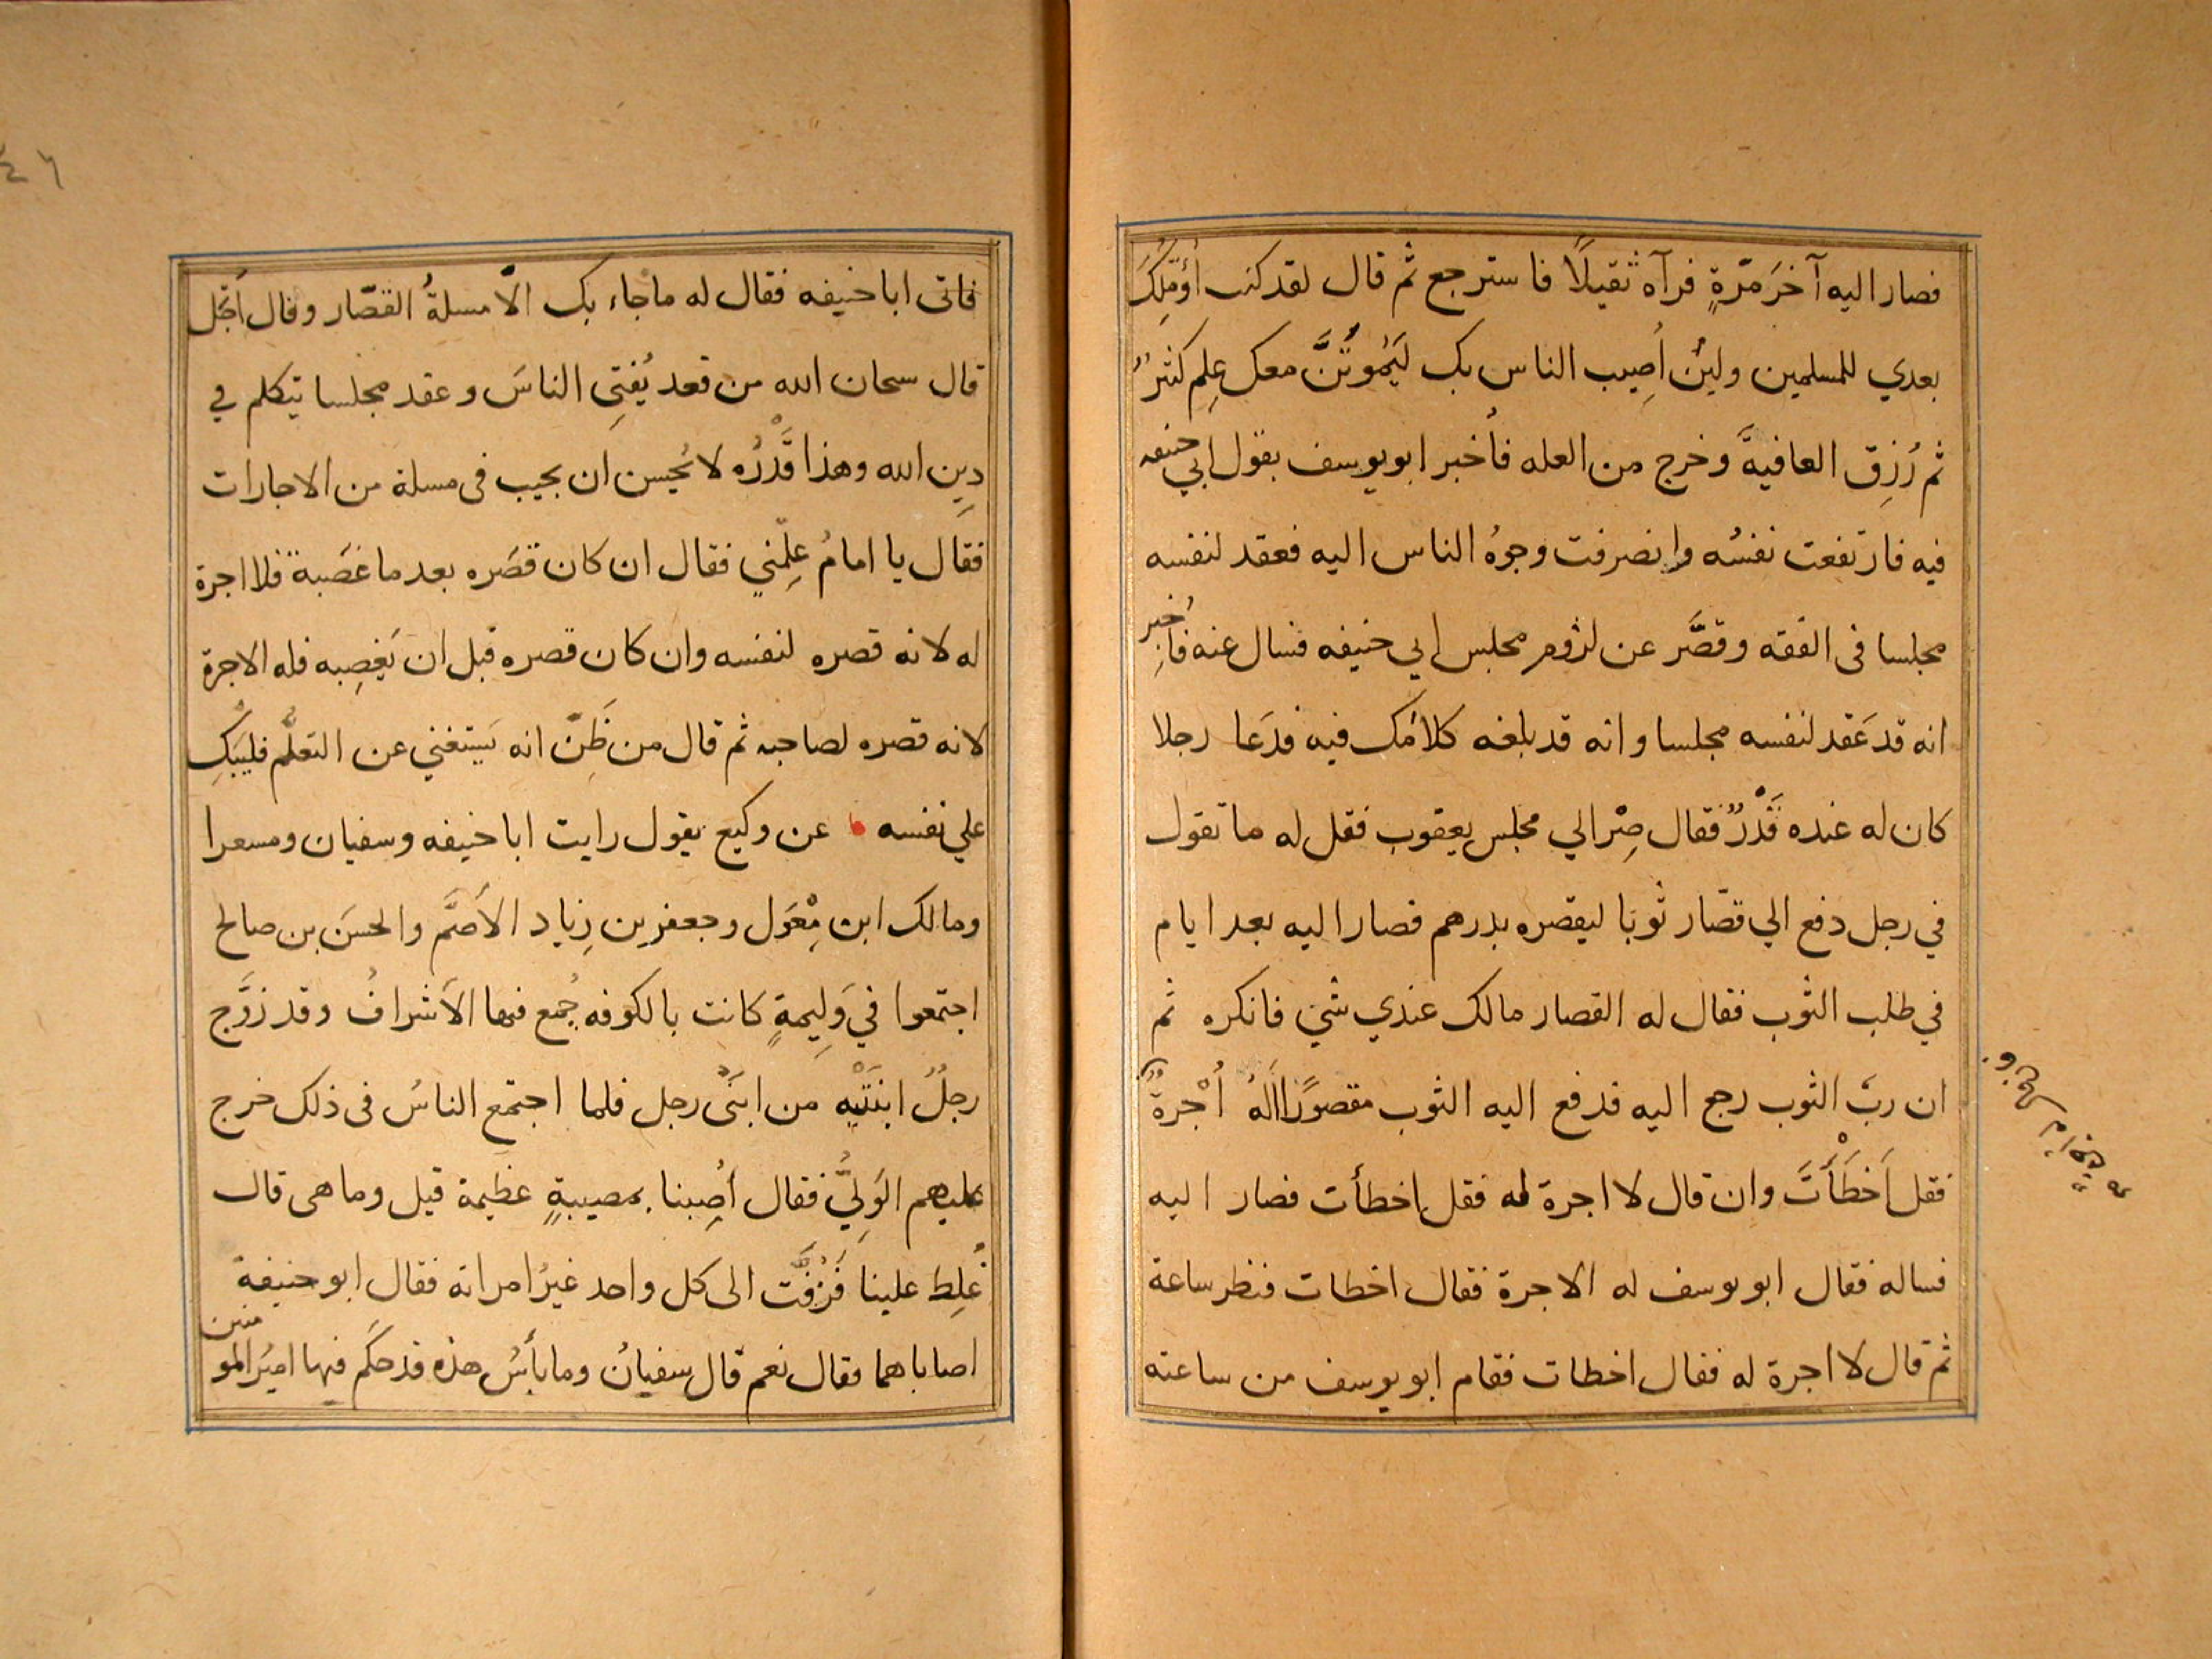 فصار اليه آخَرَ مَرّةٍ فرآه ثقيلًا فاسترجع ثم قال لقد كنت أُؤمِّلُكَ
بعدي للمسلمين ولئن أُصِيب الناس بك ليَمُوتَنَّ معك عِلم كثيرٌ
ثم رُزِقَ العافيةَ وخرج من العله فأُخبر ابويوسف بقول ابي حنيفه
فيه فارتفعت نفسُه وانصرفت وجوهُ الناس اليه فعقد لنفسه
مجلسا فى الفقه وقصَّر عن لزوم مجلس ابي حنيفه فسال عنه فأُخبر
انه قد عَقد لنفسه مجلسا وانه قد بلغه كلامُك فيه فدَعَا رجلا
كان له عنده قَدْرٌ فقال صِرْ الي مجلس يعقوب فقل له ما تقول
في رجل دفع الي قصّار ثوبَا ليقصره بدرهم فصار اليه بعد ايام
في طلب الثوب فقال له القصار مالك عندي شي فانكره ثم
ان ربّ الثوب رجع اليه فدفع اليه الثوب مقصورًا أَلَهُ أُجْرةٌ
فقل اَخطَأْتَ وان قال لا اجرة له فقل اخطأت فصار اليه
فساله فقال ابو يوسف له الاجرة فقال اخطات فنظر ساعة
ثم قال لا اجرة له فقال اخطات فقام ابويوسف من ساعته
٤٦
فاتى ابا حنيفه فقال له ما جاء بك الّا مسلةُ القصّار وقال أَجَل
قال سبحان الله من قعد يُفتِى الناسَ وعقد مجلسا يتكلم في
دِين الله وهذا قَدْرُه لا يُحسن ان يجيب فى مسلة من الاجارات
فقال يا امامُ علِّمني فقال ان كان قصَره بعد ما غَصَبه فلا اجرة
له لانه قصره لنفسه وان كان قصره قبل ان يَغصِبه فله الاجرة
لانه قصره لصاحبه ثم قال من ظَنَّ انه يَستغني عن التعلُّم فليَبْكِ
علي نفسه عن وكيع يقول رايت ابا حنيفه وسفيان ومسعرا
ومالك ابن مِغْوَل وجعفر بن زِياد الأَصَمَّ والحسَن بن صالح
اجتمعوا في وَلِيمةٍ كانت بالكوفه جُمع فيها الأَشرافُ وقد زوَّج
رجلٌ ابنَتَيْه من ابنَىْ رجل فلما اجتمع الناسُ فى ذلك خرج
عليهم الوَلِيُّ فقال أُصِبنا بمصيبةٍ عظيمة قيل وما هى قال
غُلِطَ علينا فَزُفَّت الى كل واحد غيرُ امراته فقال ابو حنيفة
اصاباهما فقال نعم قال سفيانُ وما بأسُ هذه قد حكَم فيها اميرُ المومنين